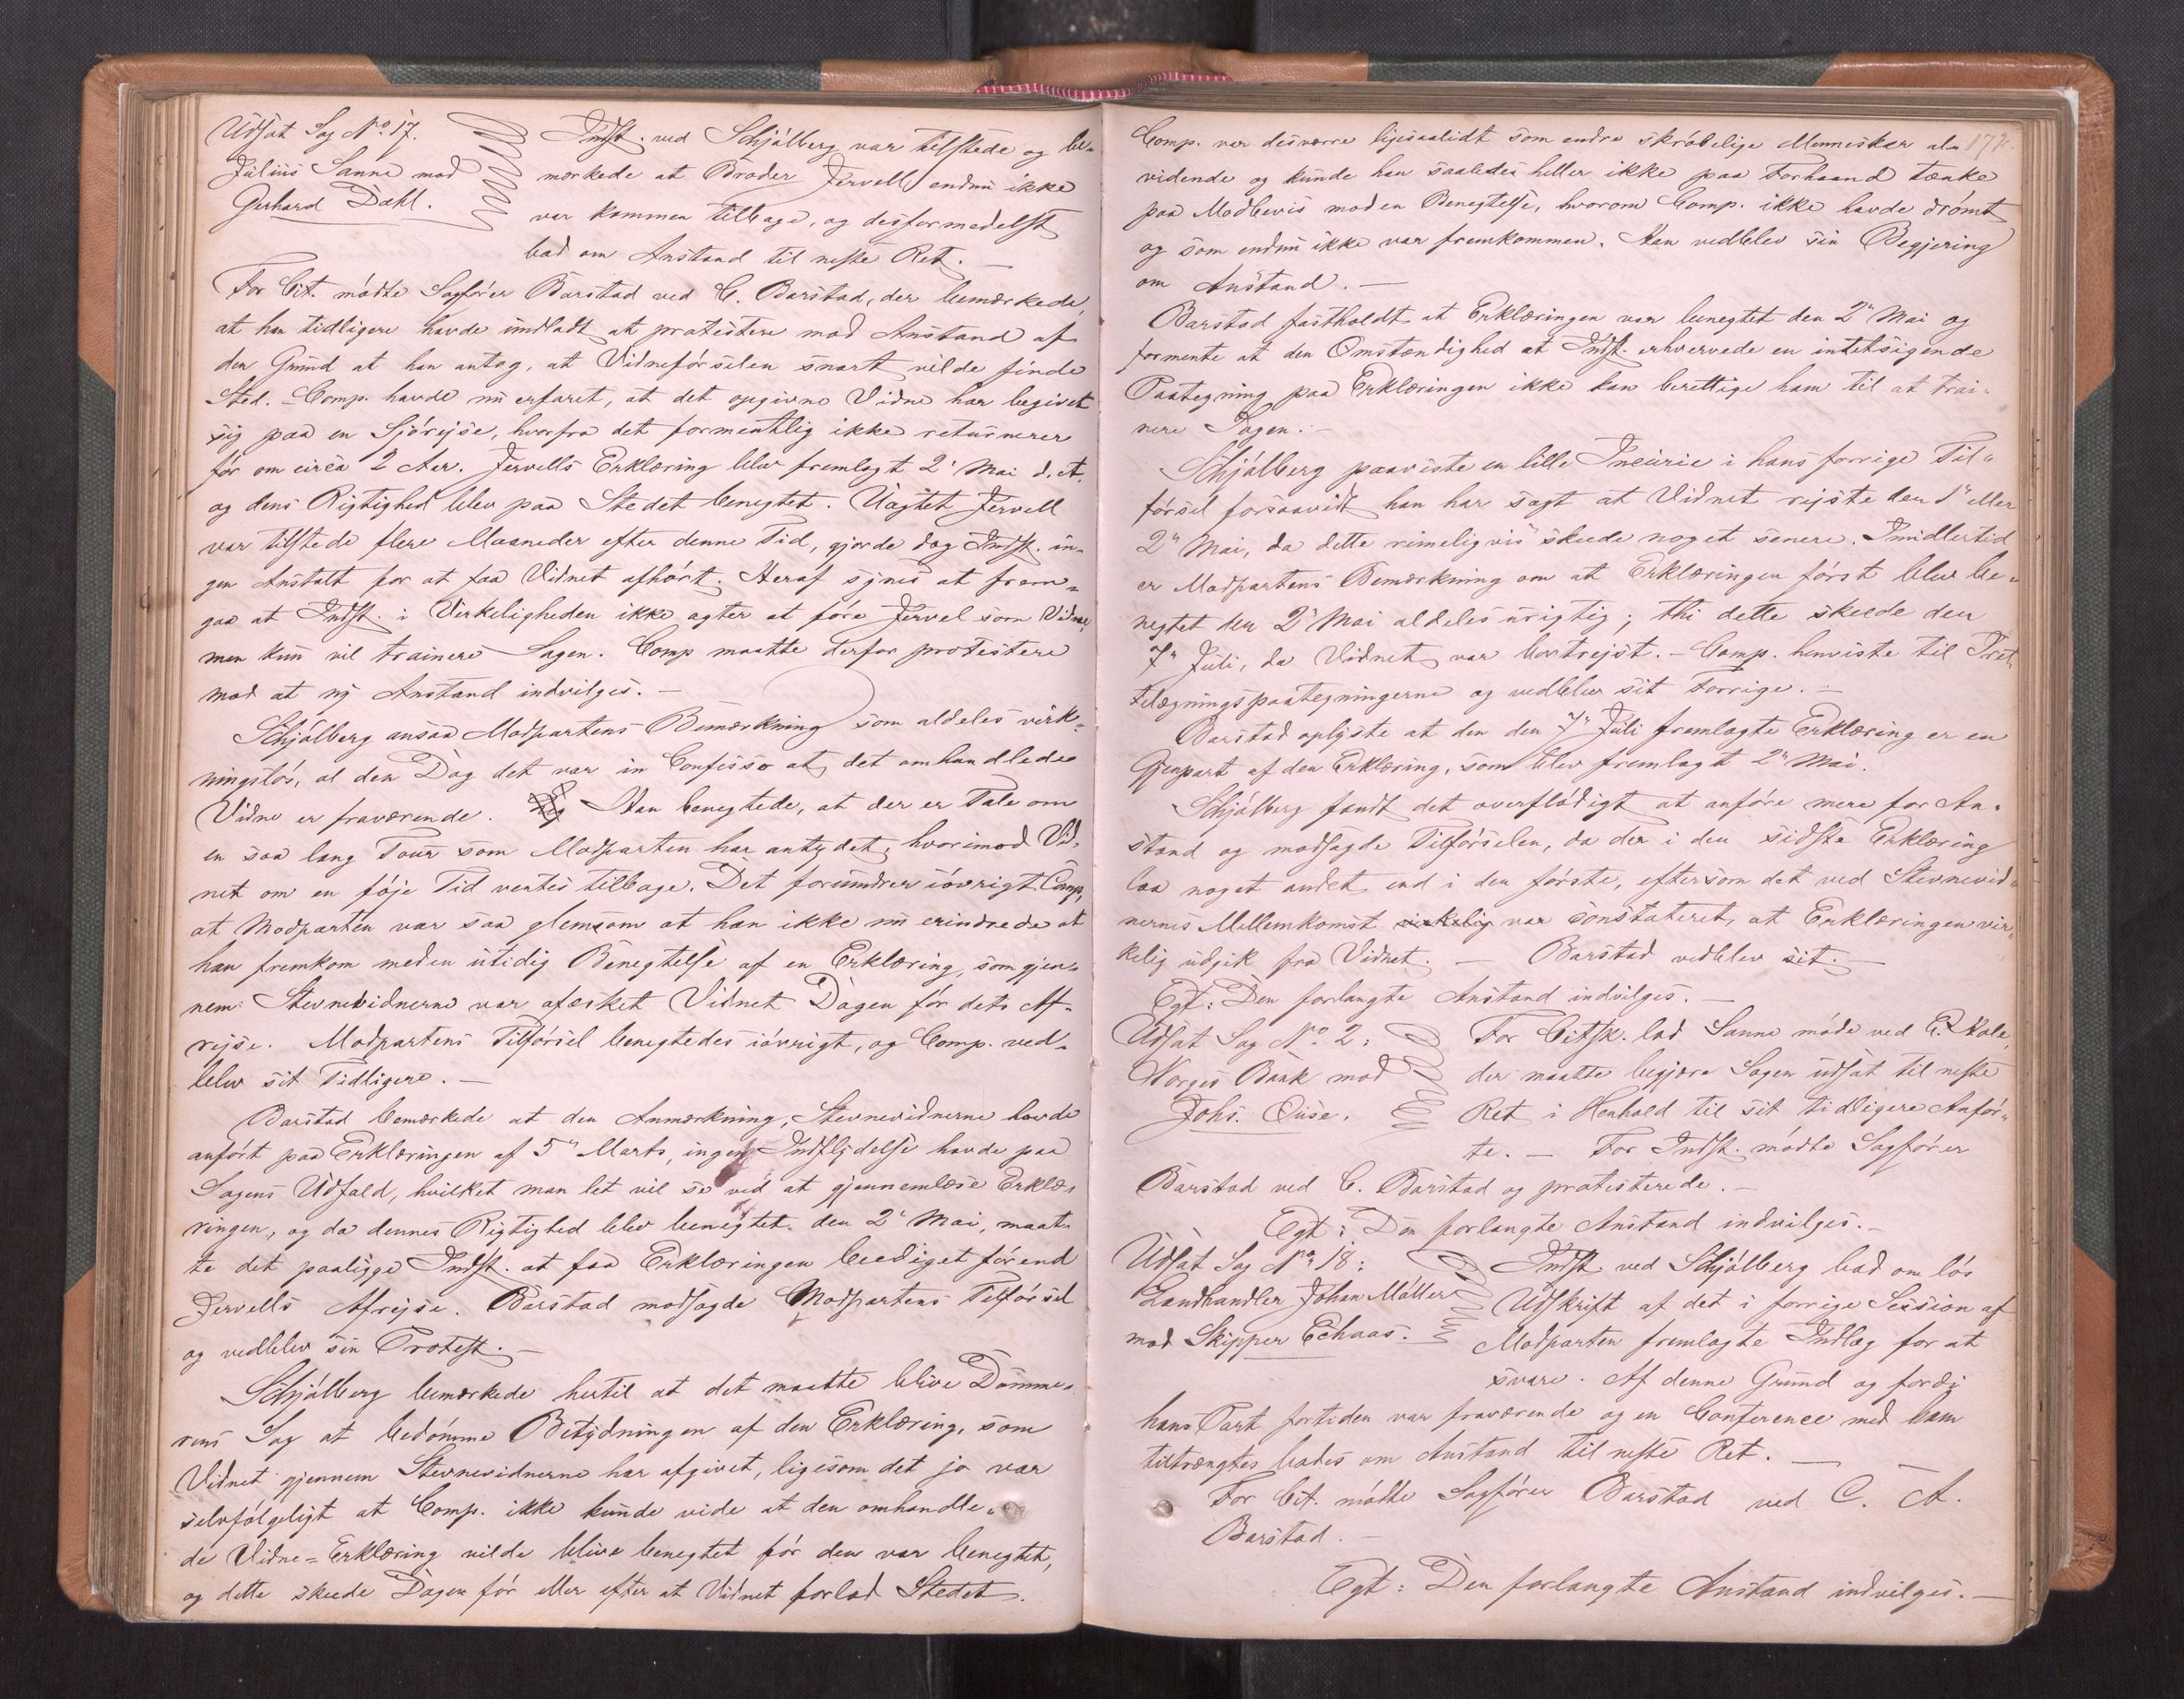 Udsat Sag No 17.
Julius Sanne mod
Gerhard Dahl.
Indst. ved Schjølberg var tilstede og be-
mærkede at Broder Jervell endnu ikke
var kommen tilbage, og desformedelst
bad om Anstand til næste Ret. —
For Cit. mødte Sagfører Barstad ved C. Barstad, der bemærkede,
at han tidligere havde undladt at protestere mod Anstand af
den Grund at han antog, at Vidneførselen snart vilde finde
Sted. - Comp. havde nu erfaret, at det opgivne Vidne har begivet
sig paa en Sjørejse, hvorfra det formentlig ikke returnerer
før om circa 2 Aar. Jervells Erklæring blev fremlagt 2' Mai d. A.
og dens Rigtighed blev paa Stedet benegtet. Uagtet Jervell
var tilstede flere Maaneder efter denne Tid, gjorde dog Indst. in-
gen Anstalt for at faa Vidnet afhørt. Heraf synes at frem-
gaa at Indst. i Virkeligheden ikke agter at føre Jervel som Vidne,
men kun vil trainere Sagen. Comp maatte derfor protestere
mod at ny Anstand indvilges. —
Schjølberg ansaa Modpartens Bemærkning som aldeles virk-
ningsløs, al den Dag det var in Confesso at det omhandlede
Vidne er fraværende. Han benegtede, at der er Tale om
en saa lang Tour som Modparten har antydet, hvorimod Vid-
net om en føje Tid ventes tilbage. Det forundrer iøvrigt Comp.
at Modparten var saa glemsom at han ikke nu erindrede at
han fremkom med en utidig Benegtelse af en Erklæring, som gjen-
nem Stevnevidnerne var afæsket Vidnet Dagen før dets Af-
rejse. Modpartens Tilførsel benegtedes iøvrigt, og Comp. ved-
blev sit Tidligere. —
Barstad bemærkede at den Anmærkning, Stevnevidnerne havde
anført paa Erklæringen af 5" Marts, ingen Indflydelse havde paa
Sagens Udfald, hvilket man let vil se ved at gjennemlæse Erklæ-
ringen, og da dennes Rigtighed blev benegtet den 2' Mai, maat-
te det paaligge Indst. at faa Erklæringen beediget førend
Jervells Afrejse. Barstad modsagde Modpartens Tilførsel
og vedblev sin Protest. —
Schjølberg bemærkede hertil at det maatte blive Domme-
rens Sag at bedømme Betydningen af den Erklæring, som
Vidnet gjennem Stevnevidnerne har afgivet, ligesom det jo var
selvfølgeligt at Comp. ikke kunde vide at den omhandle-
de Vidne=Erklæring vilde blive benegtet før den var benegtet,
og dette skeede Dagen før eller efter at Vidnet forlod Stedet.
172.
Comp. var desværre ligesaalidt som andre skrøbelige Mennesker al-
vidende og kunde han saaledes heller ikke paa Forhaand tænke
paa Modbevis mod en Benegtelse, hvorom Comp. ikke havde drømt
og som endnu ikke var fremkommen. Han vedblev sin Begjering
om Anstand. —
Barstad fastholdt at Erklæringen var benegtet den 2" Mai og
formente at den Omstændighed at Indst. erhvervede en intetsigende
Paategning paa Erklæringen ikke kan berettige ham til at trai-
nere Sagen. —
Schjølberg paaviste en lille Incurie i hans forrige Til-
førsel forsaavidt han har sagt at Vidnet rejste den 1" eller
2" Mai, da dette rimeligvis skeede noget senere. Imidlertid
er Modpartens Bemærkning om at Erklæringen først blev be-
negtet den 2" Mai aldeles urigtig; thi dette skeede den
7" Juli, da Vidnet var bortrejst. - Comp. henviste til Iret-
telægningspaategningerne og vedblev sit Forrige. —
Barstad oplyste at den den 7" Juli fremlagte Erklæring er en
Gjenpart af den Erklæring, som blev fremlagt 2" Mai.
Schjølberg fandt det overflødigt at anføre mere for An-
stand og modsagde Tilførselen, da der i den sidste Erklæring
laa noget andet end i den første, eftersom det ved Stevnevid-
nernes Mellemkomst virkelig var constateret, at Erklæringen vir-
kelig udgik fra Vidnet. — Barstad vedblev sit. —
Egt: Den forlangte Anstand indvilges. —
Udsat Sag No 2:
Norges Bank mod
Johs. Ouse.
For Citsk. lod Sanne møde ved Hole,
der maatte begjære Sagen udsat til næste
Ret i Henhold til sit tidligere Anfør-
te. — For Indst. mødte Sagfører
Barstad ved C. Barstad og protesterede. —
Egt: Den forlangte Anstand indvilges. —
Udsat Sag No 18:
Landhandler Johan Møller
mod Skipper Echaas.
Indst. ved Schjølberg bad om løs
Udskrift af det i forrige Session af
Modparten fremlagte Indlæg for at
svare. Af denne Grund og fordi
hans Part fortiden var fraværende og en Conference med ham
tiltrængtes bades om Anstand til næste Ret. —
For Cit. mødte Sagfører Barstad ved C. A.
Barstad. —
Egt: Den forlangte Anstand indvilges. —